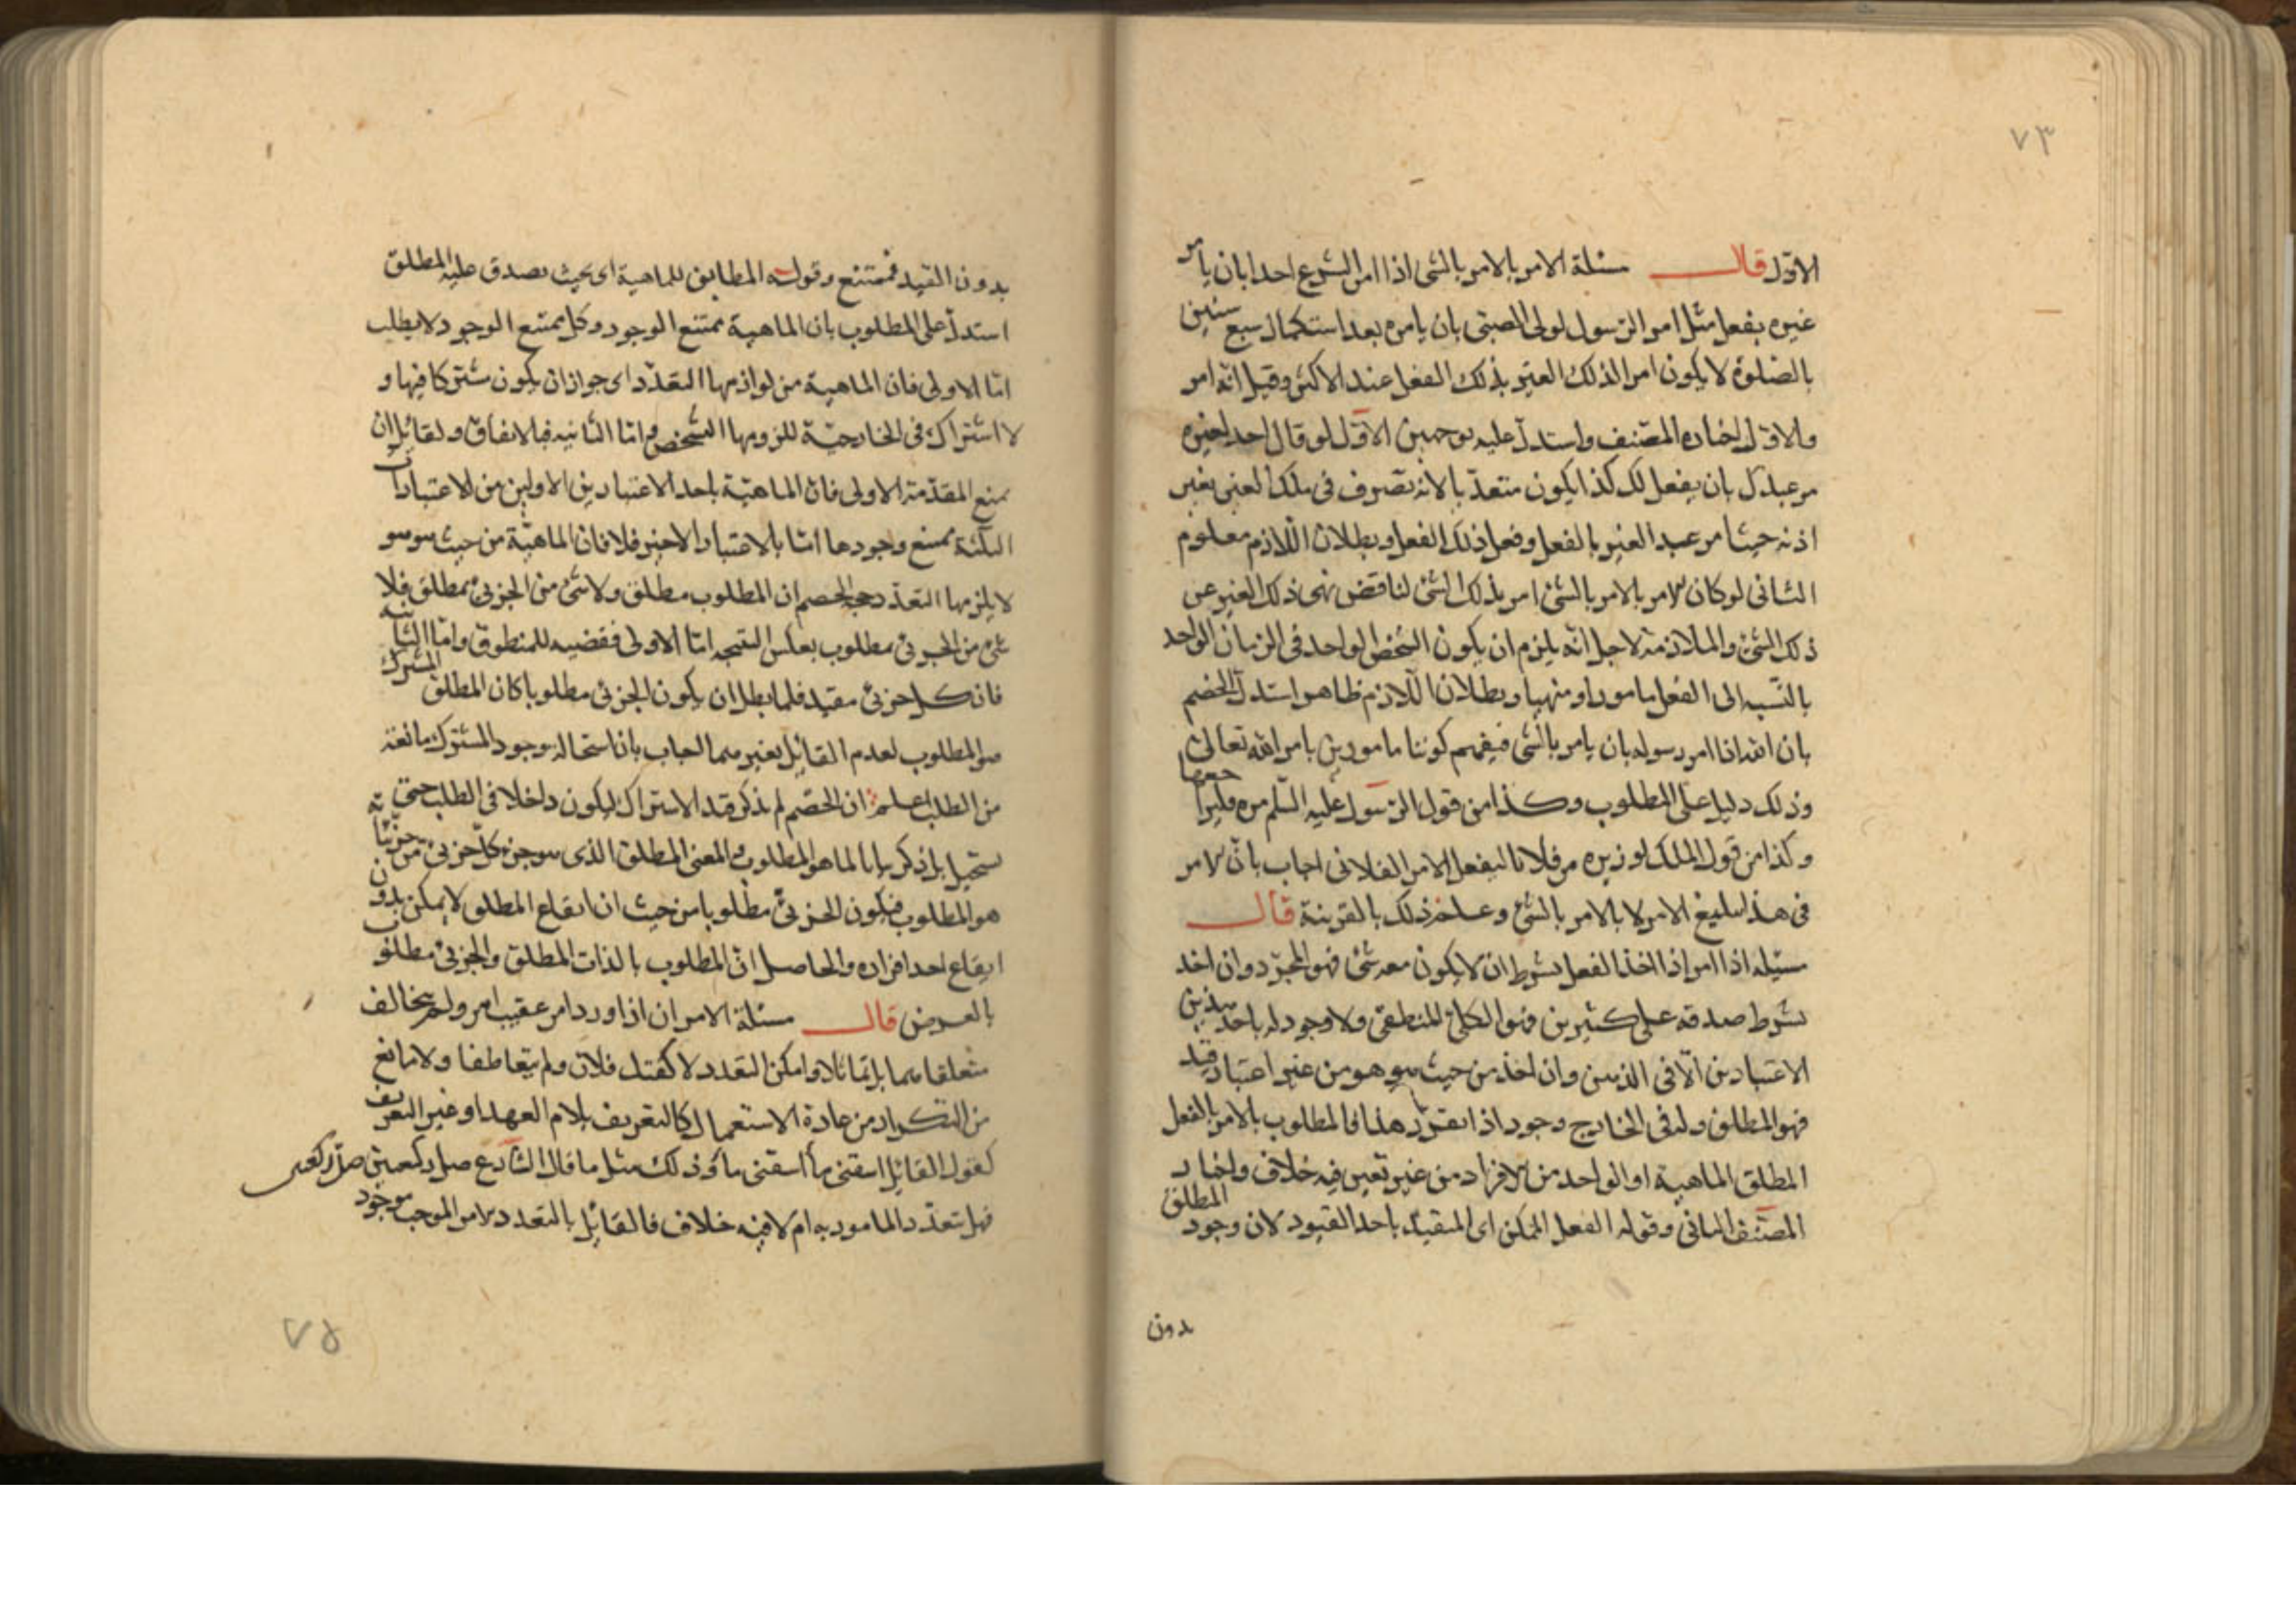 ٧٣
الاول قال مسئلة الامر بالامر بالشئ اذا امر الشرع احدا بان يأمر
غيره بفعل مثل امر الرسول لولى الصبى بان يامره بعد استكمال سبع سنين
بالصلوة لا يكون امرا لذلك الغير بذلك الفعل عند الاكثر وقيل انه امر
والاول اختاره المصنف واستدل عليه بوجهين الاول لو قال احد لغيره
مر عبدك بان يفعل لك كذا يكون متعديا لانه تصرف فى ملك الغير بغير
اذنه حيث امر عبد الغير بالفعل وفعل ذلك الفعل وبطلان اللازم معلوم
الثانى لو كان الامر بالامر بالشئ امر بذلك الشئ لناقض نهى ذلك الغير عن
ذلك الشئ والملازمة لاجل انه يلزم ان يكون الشخص الواحد فى الزمان الواحد
بالنسبه الى الفعل مامورا ومنهيا وبطلان اللازم ظاهر استدل الخصم
بان الله اذا امر رسوله بان يامر بالشئ فيفهم كوننا مامورين بامر الله تعالى
وذلك دليل على المطلوب وكذا من قول الرسول عليه السلم مره فليراجعها
وكذا من قول الملك لوزيره مر فلانا ليفعل الامر الفلانى اجاب بان الامر
فى هذا تبليغ الامر لا بالامر بالشئ وعلم ذلك بالقرينة قال
مسئله اذا امر اذا اخذ الفعل بشرط ان لا يكون معه شئ فهو المجرد وان اخذ
بشرط صدقه على كثيرين فهو الكلى المنطقى ولا وجود له باحد هذين
الاعتبارين الا فى الذهن وان اخذ من حيث هو هو من غير اعتبار قيد
فهو المطلق وله فى الخارج وجود اذا تقرر هذا فالمطلوب بالامر بالفعل
المطلق الماهية او الواحد من الافراد من غير تعين فيه خلاف واختار
المصنف الثانى وقوله الفعل الممكن اى المقيد باحد القيود لان وجود المطلق
بدون
بدون القيد فممتنع وقوله المطابق للماهية اى بحيث يصدق عليه المطلق
استدل على المطلوب بان الماهية ممتنع الوجود وكل ممتنع الوجود لا يطلب
اما الاولى فان الماهية من لوازمها التعدد اى جواز ان يكون مشتركا فيها و
لا اشتراك فى الخارجية للزومها الشخص واما الثانيه فبالاتفاق ولقائل ان
يمنع المقدمة الاولى فان الماهية باحد الاعتبارين الاولين من الاعتبارات
الثلثة يمتنع وجودها اما بالاعتبار الاخير فلا فان الماهية من حيث هو هو
لا يلزمها التعدد حجة الخصم ان المطلوب مطلق ولا شئ من الجزئ بمطلق فلا
شئ من الجزئ بمطلوب بعكس النتيجه اما الاولى فقضيه للمنطوق واما الثانيه
فان كل جزئ مقيد فلما بطل ان يكون الجزئ مطلوبا كان المطلق المشترك
هو المطلوب لعدم القائل بغيرهما اجاب بان استحاله وجود المشترك مانعة
من الطلب اعلم ان الخصم لم يذكر قيد الاشتراك ليكون داخلا فى الطلب حتى
يستحيل بل ذكر بانا لما هو المطلوب والمعنى المطلق الذى هو جزء كل جزئ من جزئياته
هو المطلوب فيكون الجزئ مطلوبا من حيث ان ايقاع المطلق لا يمكن بدون
ايقاع احد افراده والحاصل ان المطلوب بالذات المطلق والجزئ مطلوب
بالعرض قال مسئلة الامران اذا ورد امر عقيب امر ولم يخالف
متعلقاهما بل تماثلا وامكن التعدد لا كقتل فلان ولم يتعاطفا ولا مانع
من التكرار من عادة الاستعمال كالتعريف بلام العهد او غير التعريف
كقول القائل اسقنى ماء اسقنى ماء وذلك مثل ما قال الشارع صل ركعتين صل ركعتين
فهل تعدد المامور به ام لا فيه خلاف فالقائل بالتعدد الامر الموجب موجود
٧٥